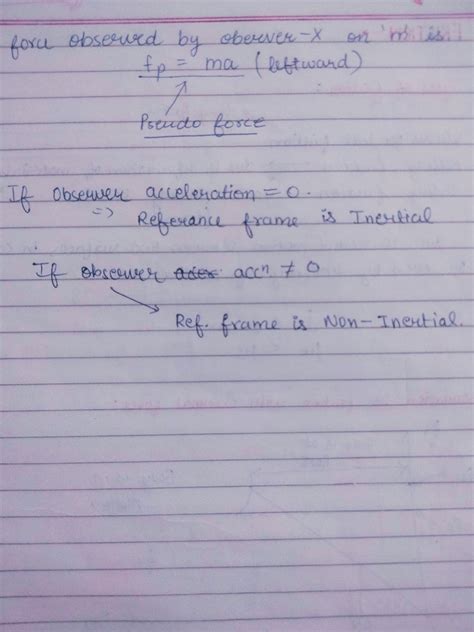 force observed by oberver-X on 'm' is
fp = ma (leftward)
Pseudo force
If Observer acceleration = 0.
=> Referance frame is Inertial
If observer accn ≠ 0
Ref. frame is Non-Inertial.